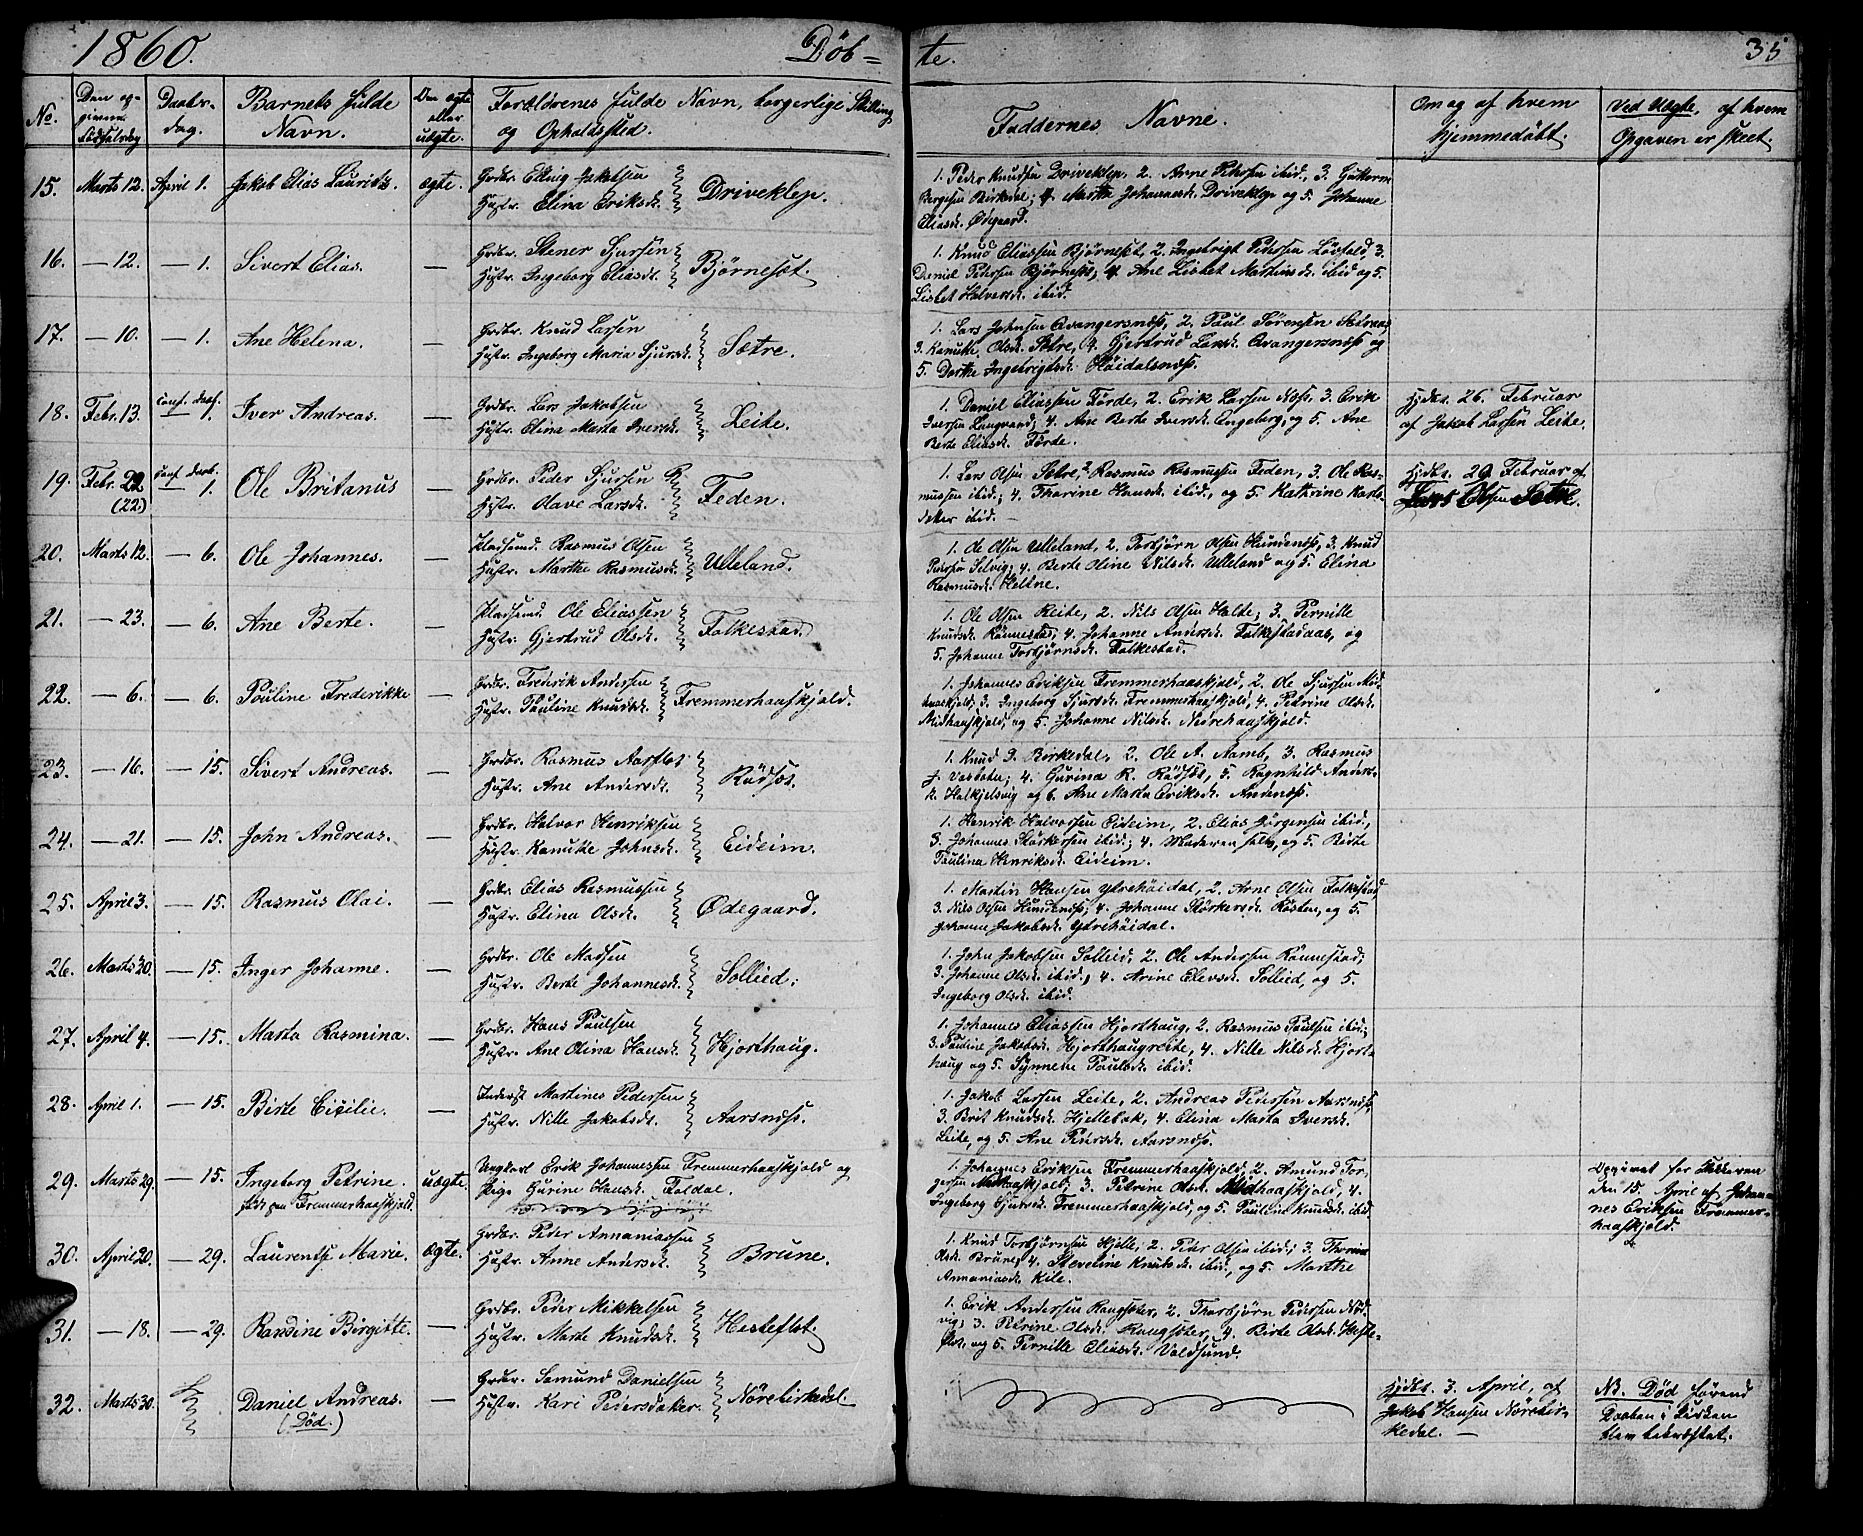 1860. Döb= te. 35
No. Den op- givne Födselsdag Daabs- dag. Barnets fulde Navn. Om ægte eller uægte. Forældrenes fulde Navn, borgerlige Stilling og Opholdssted. Faddernes Navne. Om og af hvem hjemmedöbt. Ved Uægte, af hvem Opgaven er skeet.
15. Marts 12. April 1. Jakob Elias Lauritz. ægte. Grdbr. Elling Jakobsen
Hustr. Elina Eriksdr. Driveklep.
1. Peder Knudsen Driveklep, 2. Arne Petersen ibid., 3. Guttorm
Bergesen Birkedal; 4. Marthe Johannesdr. Driveklep og 5. Johanne
Eliasdr. Ødegaard.
16. — 12. — 1. Sivert Elias. — Grdbr. Stener Sjursen
Hustr. Ingeborg Eliasdr. Bjørneset.
1. Knud Eliassen Bjørneset, 2. Ingebrigt Petersen Løvfald, 3.
Daniel Petersen Bjørneset; 4. Ane Lisbet Martinusdr. ibid og 5.
Lisbet Halversdr. ibid.
17. — 10. — 1. Ane Helena. — Grdbr. Knud Larsen
Hustr. Ingeborg Maria Sjursdr. Sætre.
1. Lars Johnsen Qvangersnæss, 2. Paul Sørensen Sætreaas
3. Kanutte Olsdr. Sætre, 4. Gjertrud Larsdr. Qvangersnæss og
5. Dorthe Ingebrigtsdr. Höidalsnæss.
18. Febr. 13. conf. Daab. — 1. Iver Andreas. — Grdbr. Lars Jakobsen
Hustr. Elina Marta Iversdr. Leite.
1. Daniel Eliassen Förde, 2. Erik Larsen Næss, 3. Erik
Iversen Langvand; 4. Ane Berte Iversdr. Engeberg, og 5. Ane
Berte Eliasdr. Förde.
Hjdbt. 26. Februar
af Jakob Larsen Leite.
19. Febr. 22. (22.) conf. Daab. — 1. Ole Britanus — Grdbr. Peder Sjursen
Hustr. Olave Larsdr. Feden.
1. Lars Olsen Sætre, 2. Rasmus Rasmussen Feden, 3. Ole Ras-
mussen ibid; 4. Tharine Hansdr. ibid., og 5. Kathrine Karls
datter ibid. —
Hjdbt. 29. Februar af
Lars Olsen Sætre.
20. Marts 12. — 6. Ole Johannes. — Pladsmd. Rasmus Olsen
Hustr. Marthe Rasmusdr. Ulleland.
1. Ole Olsen Ulleland, 2. Torbjörn Olsen Hundenæss, 3. Knud
Pedersen Selvig; 4. Berte Oline Nilsdr. Ulleland og 5. Elina
Rasmusdr. Heltne.
21. — 23. — 6. Ane Berte. — Pladsmd. Ole Eliassen
Hustr. Gjertrud Olsdr. Folkestad.
1. Ole Olsen Reite, 2. Nils Olsen Halte; 3. Pernille
Knudsdr. Rönnestad; 4. Johanne Andersdr. Folkestadaas, og
5. Johanne Torbjörnsdr. Folkestad.
22. — 6. — 6. Pauline Frederikke — Grdbr. Frederik Andersen
Hustr. Pauline Knudsdr. Fremmerhaaskjold.
1. Johannes Eriksen Fremmerhaaskjold, 2. Ole Sjursen Mid-
haaskjold; 3. Ingeborg Sjursdr. Fremmerhaaskjold, 4. Petrine Olsdr.
Midhaaskjold, og 5. Johanne Nilsdr. Nedrehaaskjold.
23. — 16. — 15. Sivert Andreas. — Grdbr. Rasmus Aarflot
Hustr. Ane Andersdr. Rødset.
1. Knud J. Birkedal, 2. Ole A. Aamb, 3. Rasmus
J. Vasbotn; 4. Gurina R. Rødset, 5. Ragnhild Anders-
dr. Halkjelsvig og 6. Ane Marta Eriksdr. Andenæss.
24. — 21. — 15. John Andreas. — Grdbr. Halvor Henriksen
Hustr. Kanutte Johnsdr. Eideim.
1. Henrik Halvorsen Eideim, 2. Elias Jørgensen ibid.,
3. Johannes Størkersen ibid.; 4. Moderen selv, og 5. Birte
Paulina Henriksdr. Eideim.
25. April 3. — 15. Rasmus Olai. — Grdbr. Elias Rasmussen
Hustr. Elina Olsdr. Ødegaard.
1. Martin Hansen Ytrehöidal, 2. Arne Olsen Folkestad,
3. Nils Olsen Hundenæss; 4. Johanne Størkersdr. Røsten, og 5.
Johanne Jakobsdr. Ytrehöidal.
26. Marts 30. — 15. Inger Johanne. — Grdbr. Ole Madsen
Hustr. Berte Johannesdr. Sollied.
1. John Jakobsen Sollied, 2. Ole Andersen Rönnestad;
3. Johanne Olsdr. ibid., 4. Arine Elevsdr. Sollied, og 5.
Ingeborg Olsdr. ibid.
27. April 4. — 15. Marta Rasmina. — Grdbr. Hans Paulsen
Hustr. Ane Olina Hansdr. Hjorthaug.
1. Johannes Eliassen Hjorthaug, 2. Rasmus Paulsen ibid.;
3. Pauline Jakobsdr. Hjorthaugreite, 4. Nille Nilsdr. Hjort-
haug og 5. Synneve Paulsdr. ibid.
28. April 1. — 15. Birte Cicilie. — Inderst Martines Pedersen
Hustr. Nille Jakobsdr. Aarsnæss.
1. Jakob Larsen Leite, 2. Andreas Pedersen Aarsnæss,
3. Brit Knudsdr. Hjellebak, 4. Elina Marta Iversdr.
Leite, og 5. Ane Pedersdr. Aarsnæss.
29. Marts 29. — 15. Ingeborg Petrine. födt paa Fremmerhaaskjold. uægte. Ungkarl Erik Johannessen Fremmerhaaskjold og
Pige Gurine Hansdr. Foldal.
1. Johannes Eriksen Fremmerhaaskjold, 2. Amund Tor-
gersen Midhaaskjold; 3. Petrine Olsdr. Midhaaskjold, 4.
Ingeborg Sjursdr. Fremmerhaaskjold, og 5. Pauline Knudsdr. ibid.
Opgivet for Faderen
den 15. April af Johan-
nes Eriksen Fremmer-
haaskjold.
30. April 20. — 29. Laurentse Marie. ægte. Grdbr. Peder Annaniassen
Hustr. Anne Andersdr. Brune.
1. Knud Torbjørnsen Hjelle; 2. Peder Olsen ibid; 3. Thorine
Olsdr. Brune, 4. Steveline Knutsdr. ibid., og 5. Marthe
Annaniasdr. Kile.
31. — 18. — 29. Randine Birgitte. — Grdbr. Peder Mikkelsen
Hustr. Marte Knudsdr. Hesteflot.
1. Erik Andersen Rangsæter, 2. Thorbjørn Pedersen Nöd-
vig; 3. Petrine Olsdr. Rangsæter, 4. Birte Olsdr. Heste-
flot, og 5. Pernille Eliasdr. Voldsund.
32. Marts 30. Daniel Andreas. (Död.) — Grdbr. Samund Danielsen
Hustr. Kari Pedersdatter. Nörebirkedal.
Hjdbt. 3. April, af
Jakob Hansen Nörebir-
kedal. —
NB. Död förend
Daaben i Kirken
blev bekræftet.